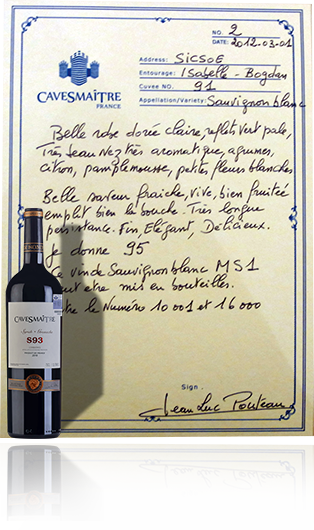 NO. 2
DATE: 2012-03-01
CAVESMAÎTRE
FRANCE
Address: SICSOE
Entourage: ISabelle - Bogdan
Cuvee NO. 91
Appellation/Variety: Sauvignon blanc
Belle rose dorée claire, reflets vert pale,
Très beau Nez très aromatique, agrumes,
citron, pamplemousse, petites fleurs blanches.
Belle saveur fraiche, vive, bien fruitée
emplit bien la bouche. Très longue
persistance. Fin, Elégant, Délicieux.
Je donne 95
Ce vin de Sauvignon blanc MS1
peut etre mis en bouteilles.
entre le Numéro 10 001 et 16 000
Sign.
Jean Luc Pouteau
CAVESMAÎTRE
S93